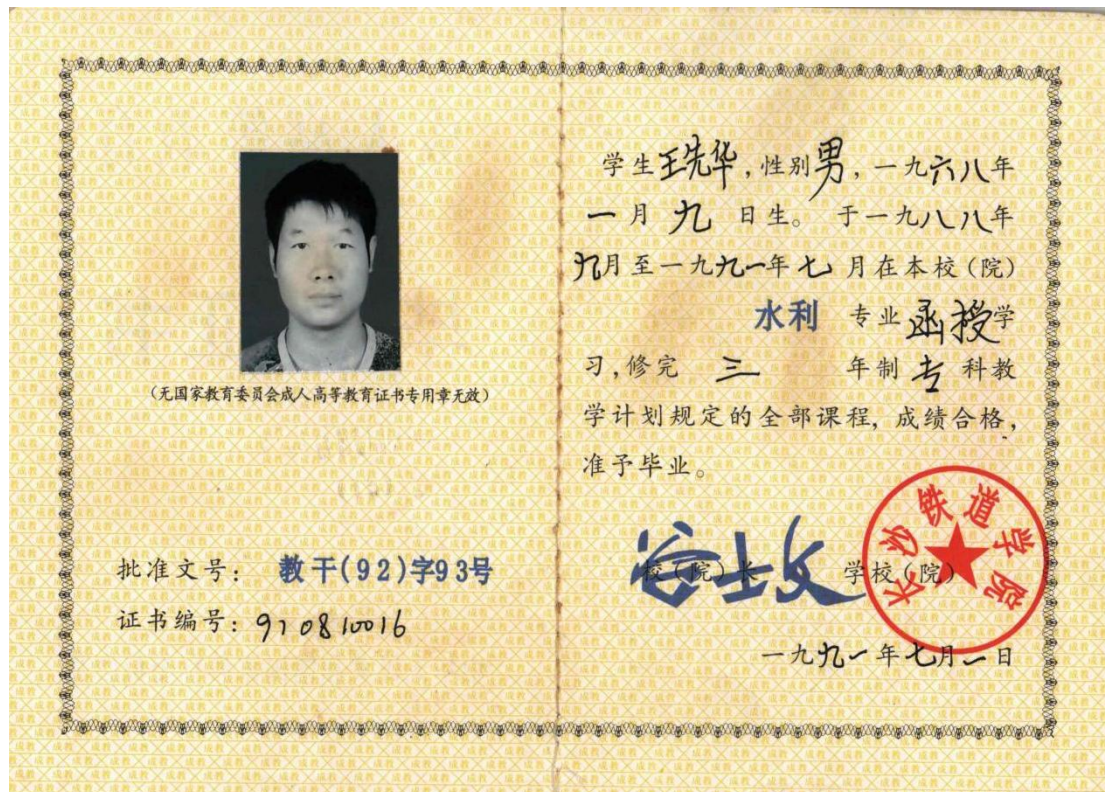 (无国家教育委员会成人高等教育证书专用章无效)
批准文号: 教干(92)字93号
证书编号: 910810016
学生王先华,性别男,一九六八年
一月九日生。于一九八八年
九月至一九九一年七月在本校(院)
水利 专业函授学
习,修完 三 年制专科教
学计划规定的全部课程,成绩合格,
准予毕业。
校(院)长 学校(院)
长沙铁道学院
一九九一年七月一日